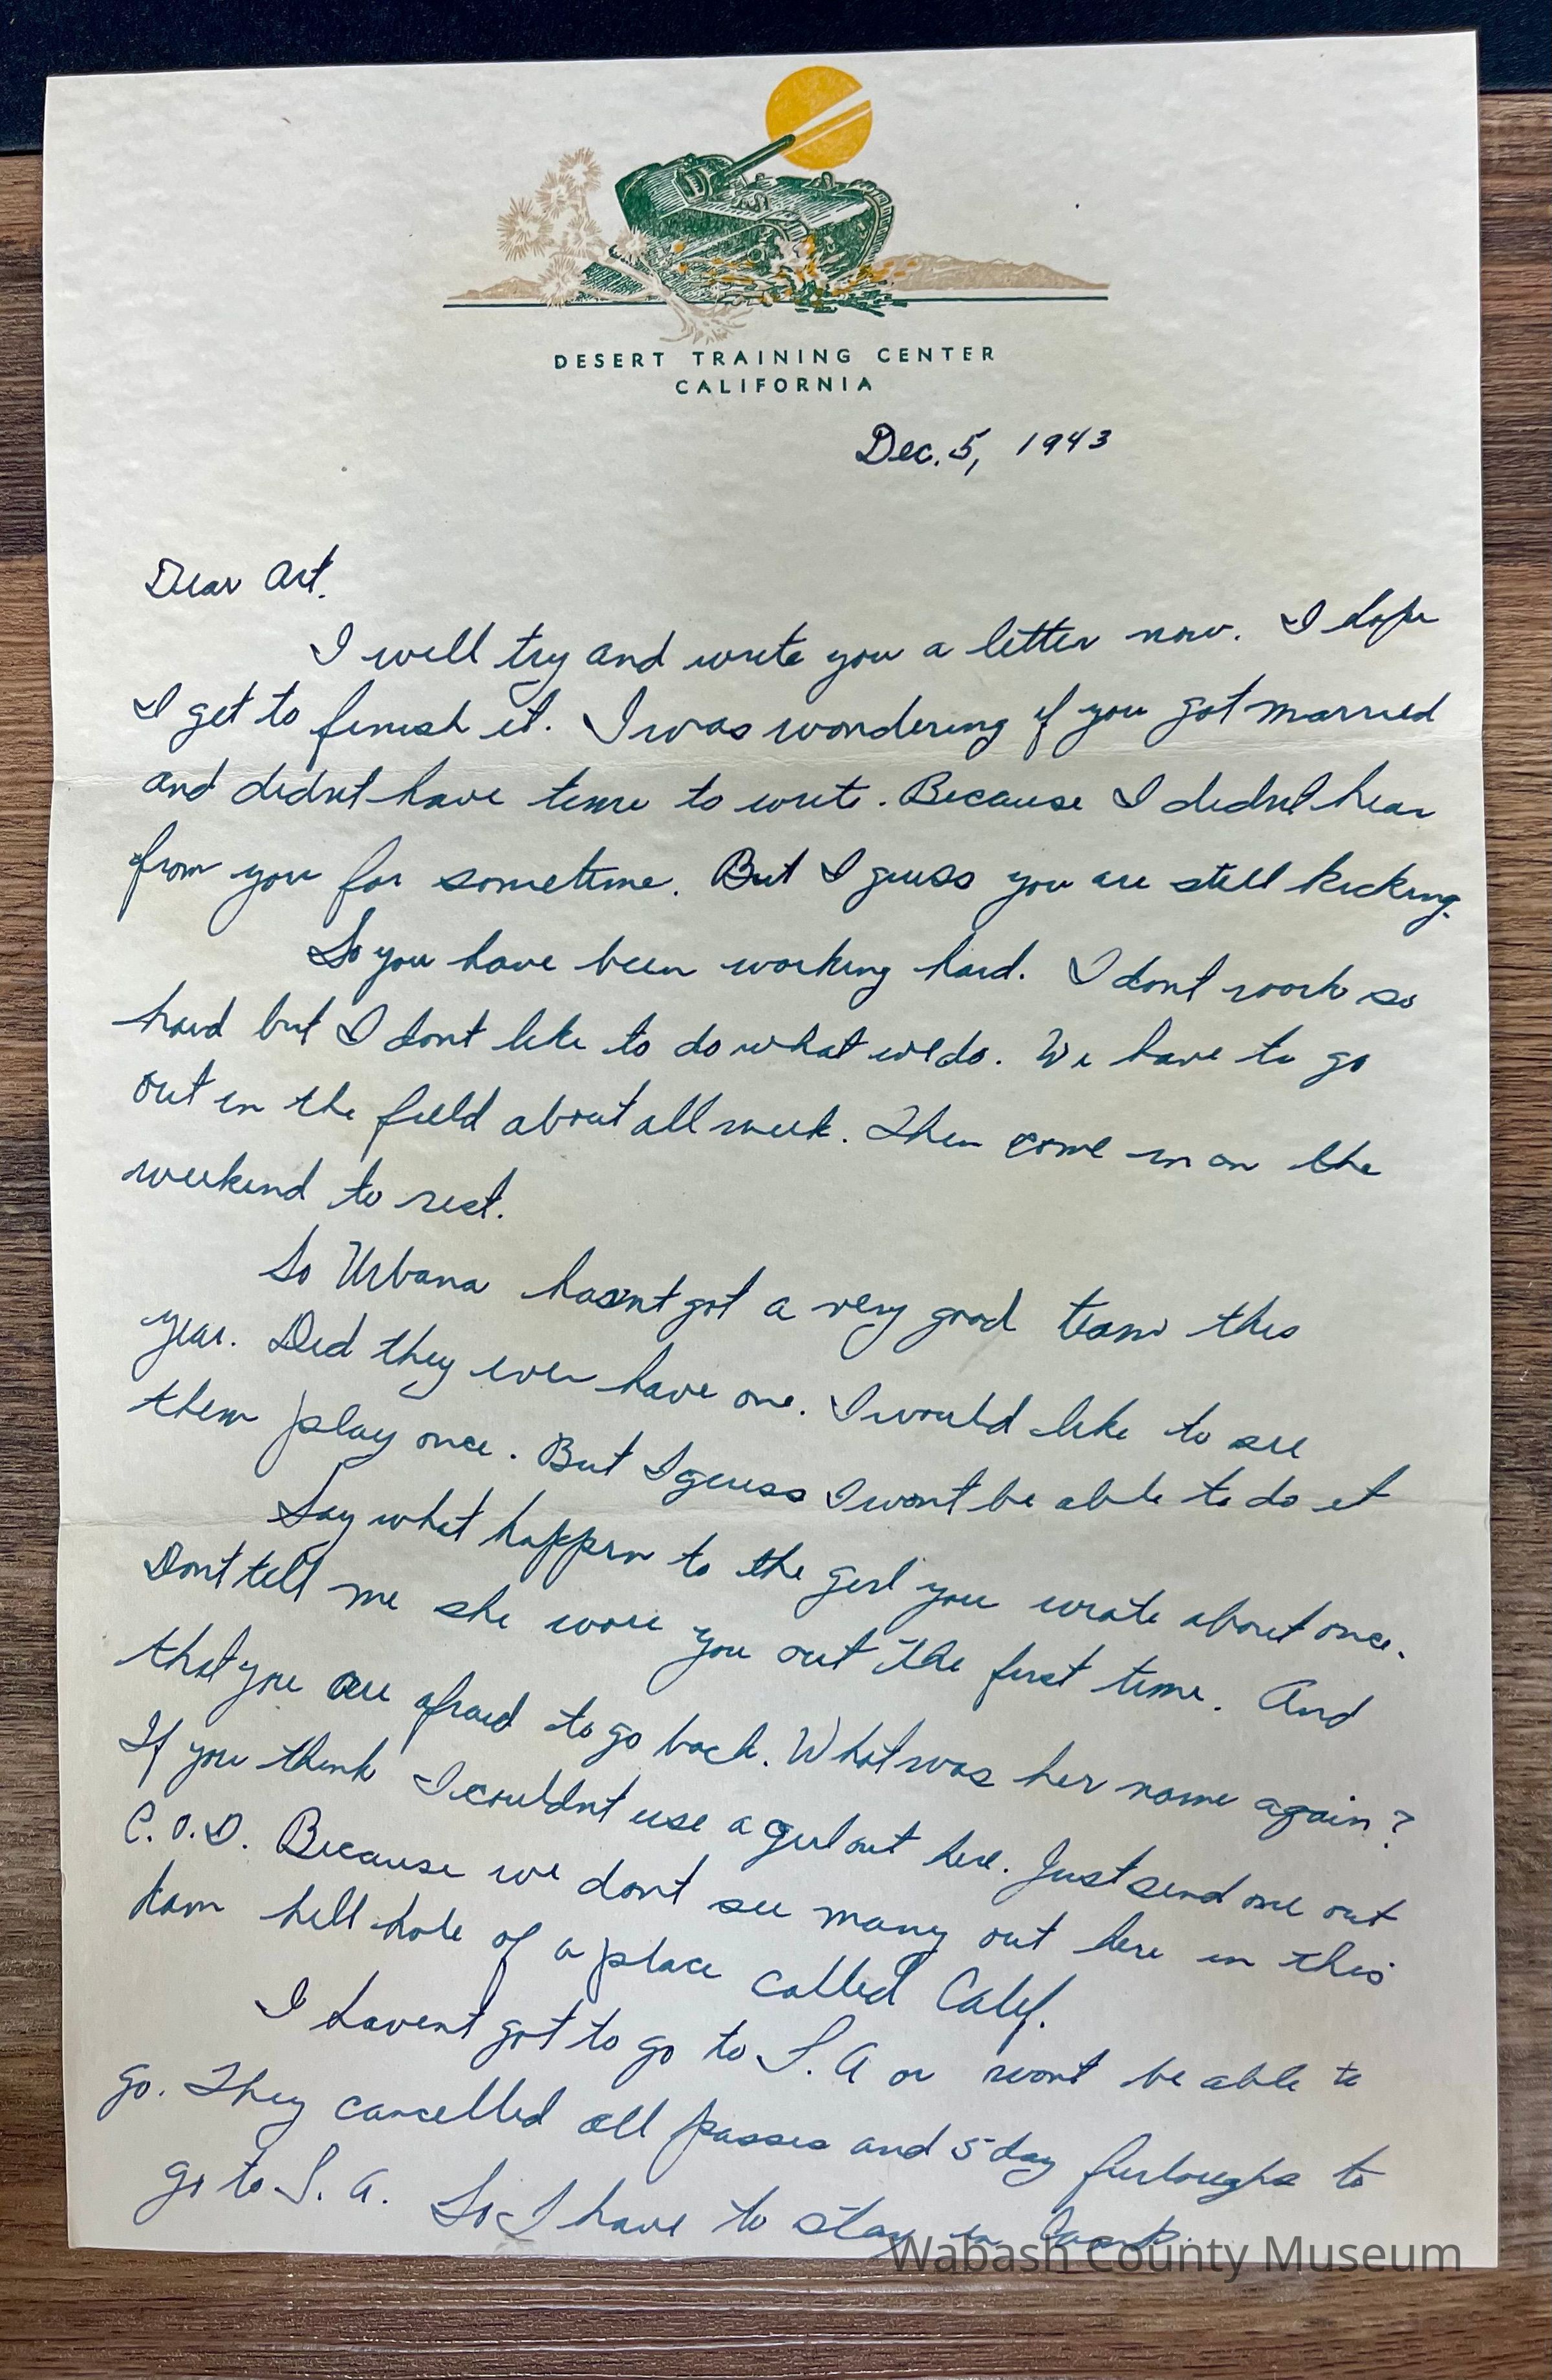 DESERT TRAINING CENTER
CALIFORNIA
Dec. 5, 1943
Dear Art.
I will try and write you a letter now. I hope
I get to finish it. I was wondering if you got married
and didnt have time to write. Because I didnt hear
from you for sometime. But I guess you are still kicking.
So you have been working hard. I dont work so
hard but I dont like to do what we do. We have to go
out in the field about all week. Then come in on the
weekend to rest.
So Urbana hasnt got a very good team this
year. Did they ever have one. I would like to see
them play once. But I guess I wont be able to do it
Say what happen to the girl you wrote about once.
Dont tell me she wore you out the first time. And
that you are afraid to go back. What was her name again?
If you think I couldnt use a girl out here. Just send one out
C.O.D. Because we dont see many out here in this
dam hell hole of a place called Calif.
I havent got to go to L.A or wont be able to
go. They cancelled all passes and 5 day furloughs to
go to L.A. So I have to stay in Camp.
Wabash County Museum